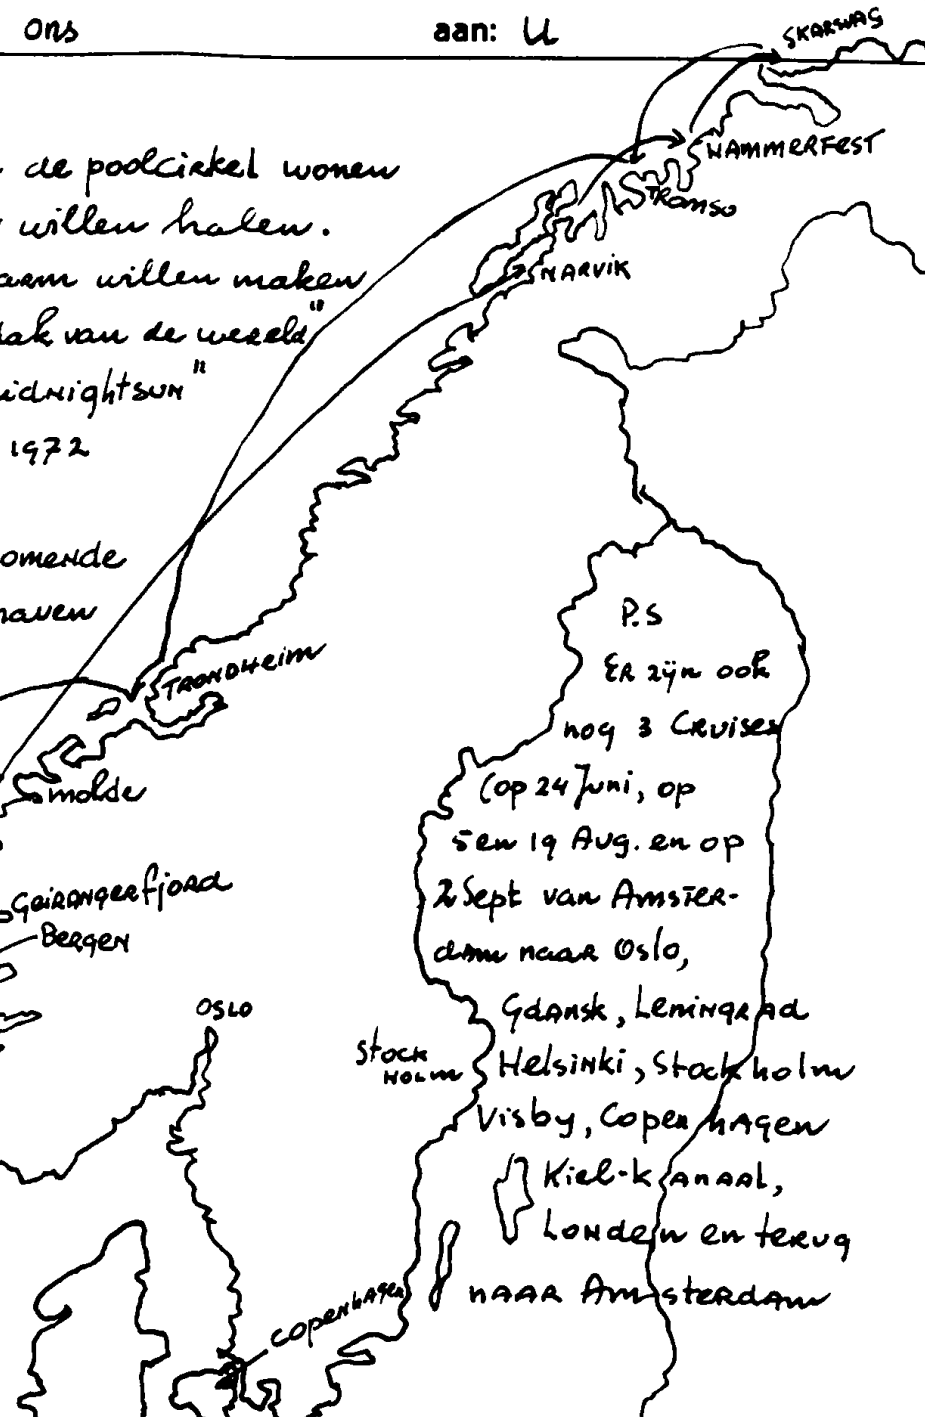 ons aan: U
SKARSVAG
HAMMERFEST
de poolcirkel wonen
TROMSO
willen halen.
arm willen maken
NARVIK
dak van de wereld"
midnightsun"
1972
omende
haven
TRONDHEIM
molde
Geirangerfjord
Bergen
OSLO
Stock
HOLM
Copenhagen
P.S
ER zijn ook
nog 3 Cruises
(op 24 Juni, op
5 en 19 Aug. en op
2 Sept van Amster-
dam naar Oslo,
Gdansk, Leningrad
Helsinki, Stockholm
Visby, Copenhagen
Kiel-kanaal,
Londen en terug
naar Amsterdam